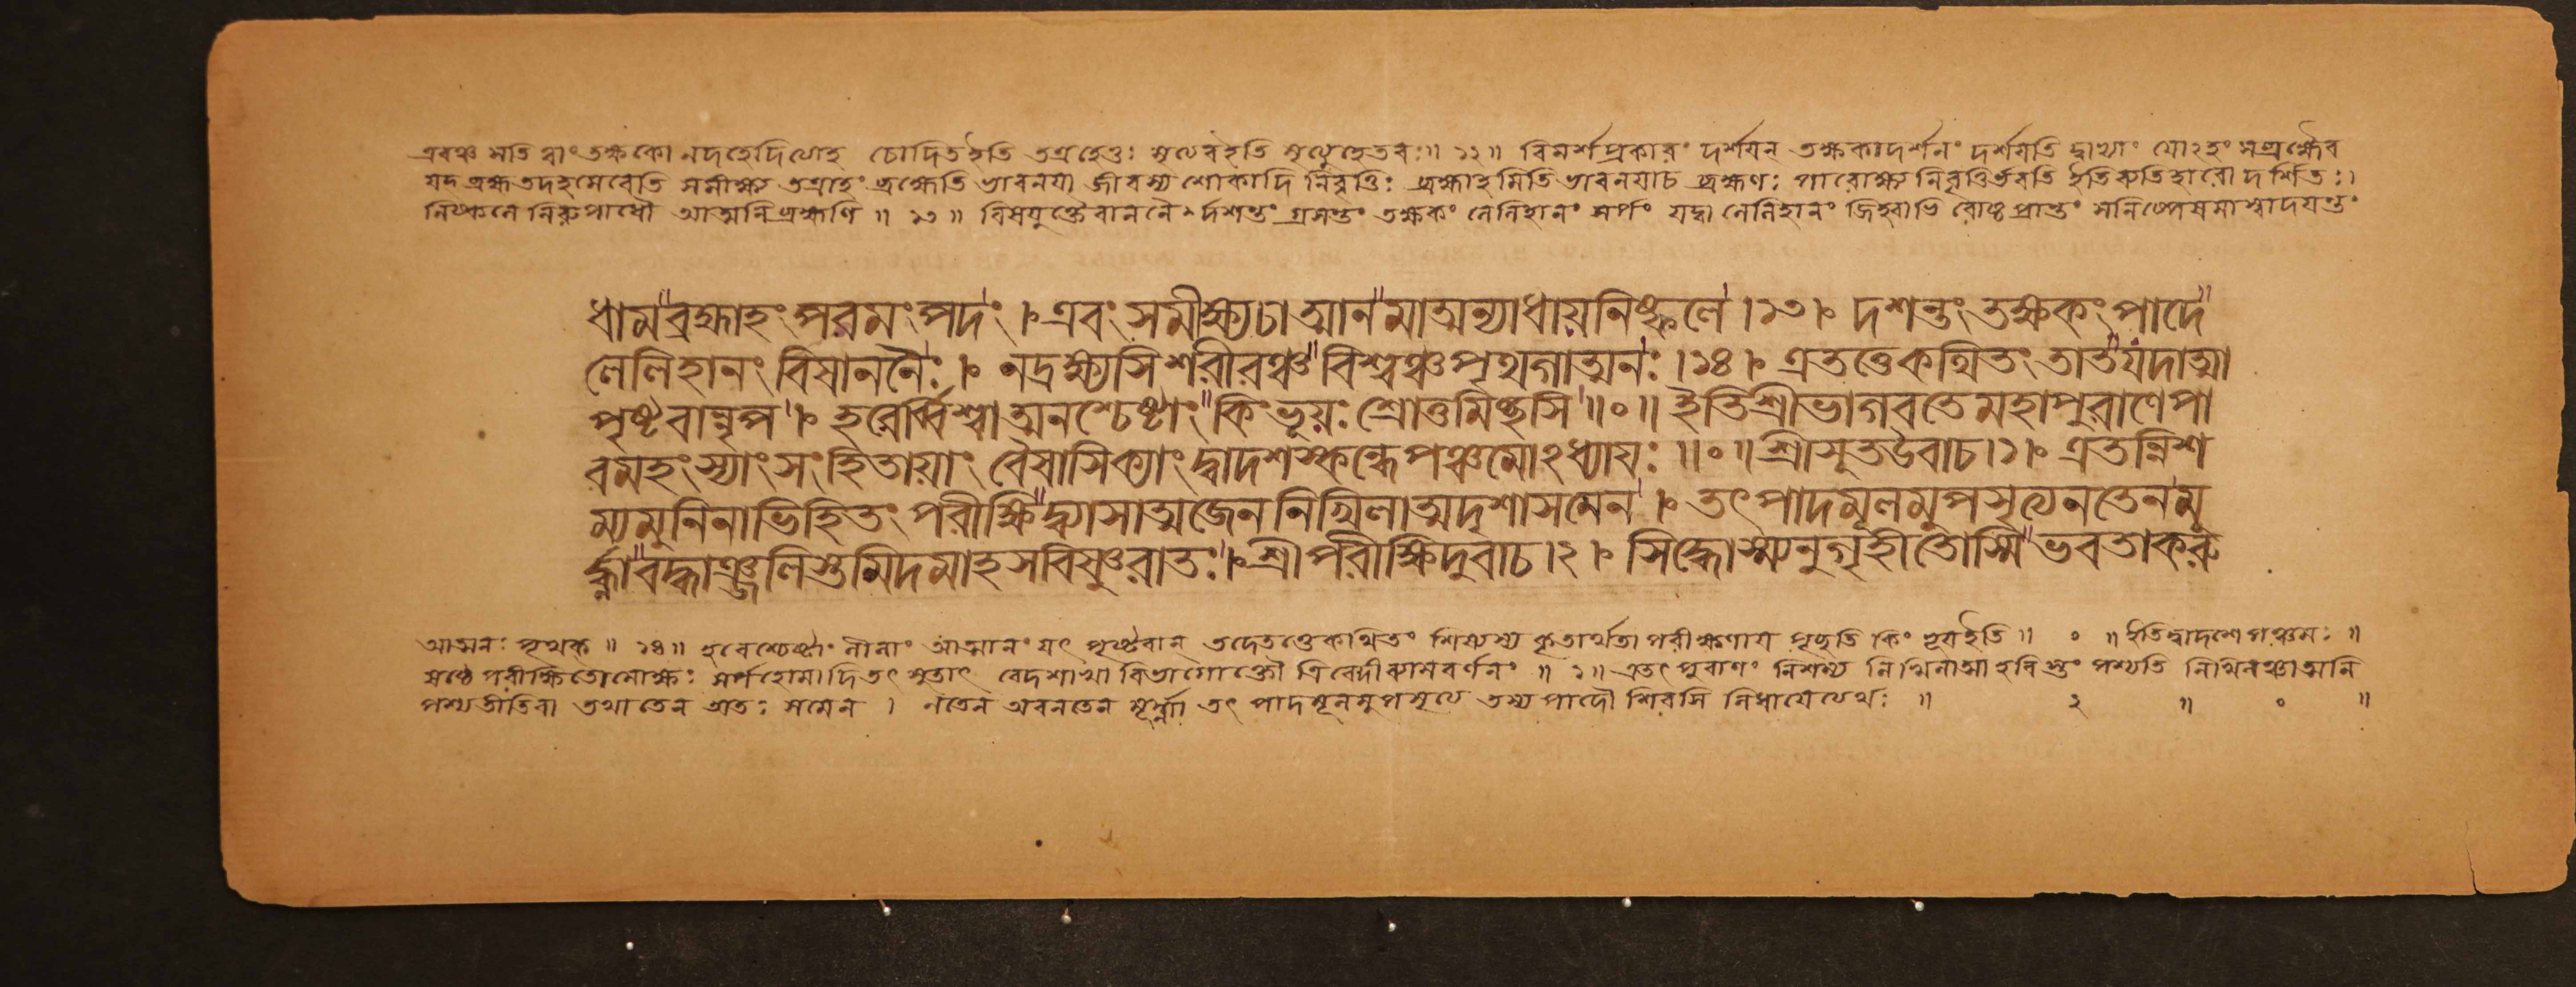 এবঞ্চ সতি ত্বাং তক্ষকো নদহেদিত্যাহ চোদিতইতি তত্রহেতুঃ মৃত্যবইতি মৃত্যুহেতবঃ॥ ১২॥ বিমর্শপ্রকারং দর্শয়ন্ তক্ষকাদর্শনং দর্শয়তি দ্বাভ্যাং যোঽহং সব্রহ্মৈব
যদ্ ব্রহ্ম তদহমেবেতি সমীক্ষ্য তত্রাহং ব্রহ্মেতি ভাবনয়া জীবস্য শোকাদি নিবৃত্তিঃ ব্রহ্মাহমিতি ভাবনয়াচ ব্রহ্মণঃ পারোক্ষ্য নিবৃত্তির্ভবতি ইতিব্যতিহারো দর্শিতঃ।
নিষ্কলে নিরুপাধৌ আত্মনি ব্রহ্মণি ॥ ১৩ ॥ বিষযুক্তৈরাননৈর্দশন্তং গ্রসন্তং তক্ষকং লেলিহানং সর্পং যদ্বা লেলিহানং জিহ্বাভি রোষ্ঠপ্রান্তং
ধামব্রহ্মাহং পরমং পদং । এবং সমীক্ষ্যচাত্মানমাত্মন্যাধায়নিষ্কলে ।১৩। দশন্তং তক্ষকং পাদে
লেলিহানং বিষাননৈঃ । নদ্রক্ষ্যসি শরীরঞ্চ বিশ্বঞ্চ পৃথগাত্মনঃ ।১৪। এতত্তেকথিতং তাত যদাত্মা
পৃষ্টবান্নৃপ । হরের্ব্বিশ্বাত্মনশ্চেষ্টাং কিং ভূয়ঃ শ্রোতুমিচ্ছসি ॥০॥ ইতিশ্রীভাগবতে মহাপুরাণে পা
রমহংস্যাং সংহিতায়াং বৈয়াসিক্যাং দ্বাদশস্কন্ধে পঞ্চমোঽধ্যায়ঃ ॥০॥ শ্রীসূতউবাচ।১। এতন্নিশ
ম্য মুনিনাভিহিতং পরীক্ষিদ্ব্যাসাত্মজেন নিখিলাত্মদৃশাসমেন । তৎপাদমূলমুপসৃত্যনতেনমূ
র্দ্ধ্নাবদ্ধাঞ্জলিস্তমিদমাহ সবিষ্ণুরাতঃ । শ্রীপরীক্ষিদুবাচ।২। সিদ্ধোস্ম্যনুগৃহীতোস্মি ভবতাকরু
আত্মনঃ পৃথক্ ॥ ১৪॥ হরেশ্চেষ্টাং লীলাং আত্মানং যৎ পৃষ্টবান্ তদেতত্তেকথিতং শিষ্যস্য কৃতার্থতা পরীক্ষণায় পৃচ্ছতি কিং ভূয়ইতি॥ ০ ॥ ইতিদ্বাদশে পঞ্চমঃ ॥
ষষ্ঠে পরীক্ষিতোমোক্ষঃ সর্পহোমাদিতৎসুতাৎ বেদশাখা বিভাগোক্তৌ ত্রিবেদীব্যাসবর্ণনং ॥ ১॥ এতৎ পুরাণং নিশম্য নিখিলাত্মাহরিস্তং পশ্যতি নিখিলঞ্চাত্মনি
পশ্যতীতিবা তথাতেন অতঃ সমেন । নতেন অবনতেন মূর্দ্ধ্না তৎ পাদমূলমুপসৃত্য তস্য পাদৌ শিরসি নিধায়েত্যর্থঃ ॥ ২ ॥ ০ ॥